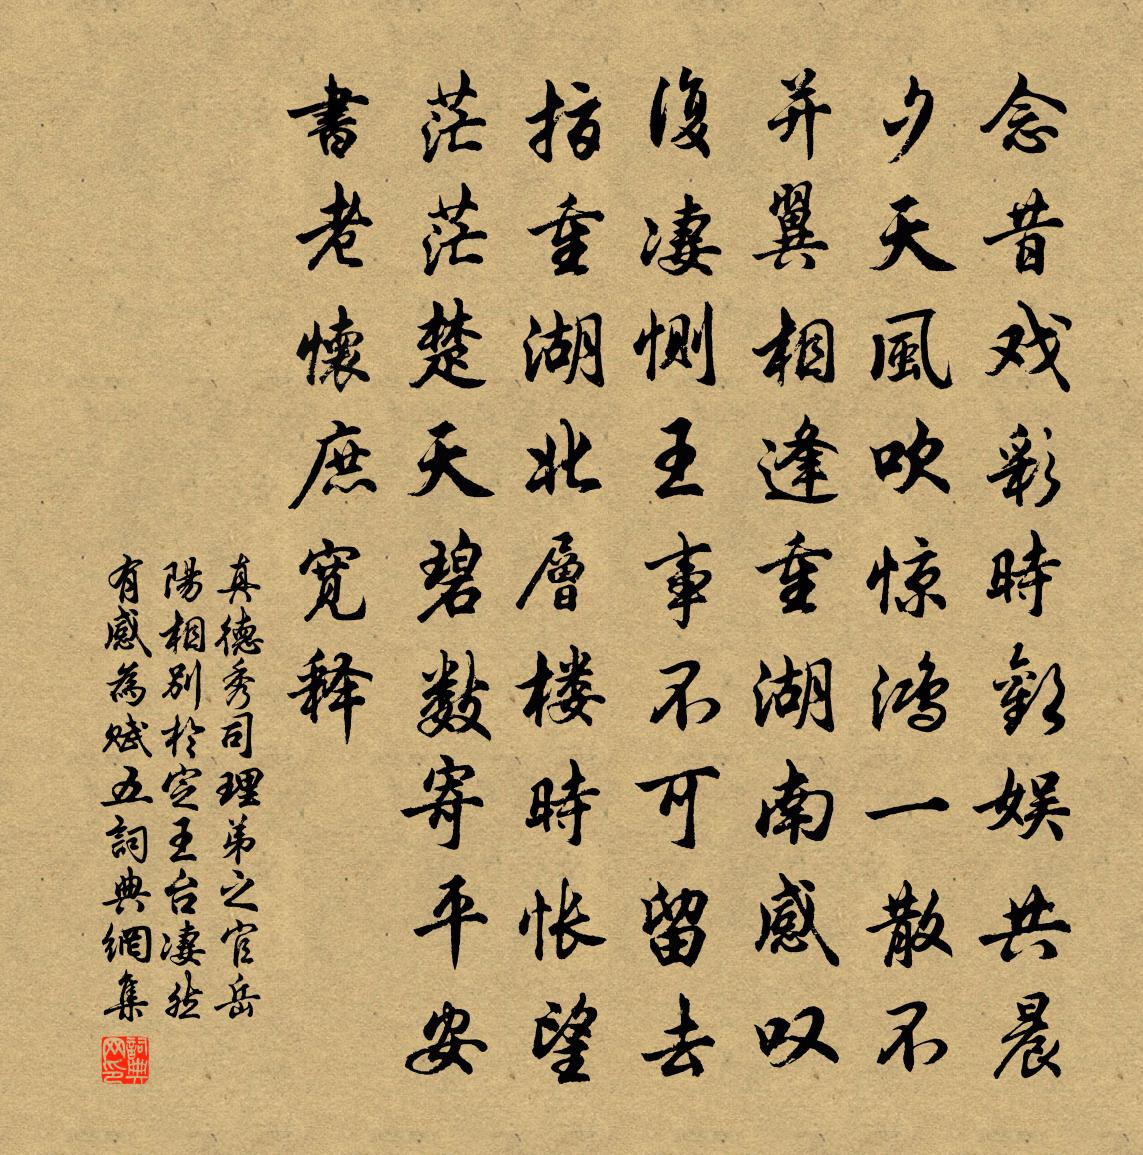 念昔戏彩時歡娱共晨
夕天風吹惊鸿一散不
并翼相逢重湖南感叹
復凄恻王事不可留去
指重湖北層楼時怅望
茫茫楚天碧数寄平安
書老懷庶宽释
真德秀司理弟之官岳
陽相别於定王台凄然
有感為赋五詞典網集
詞典网印